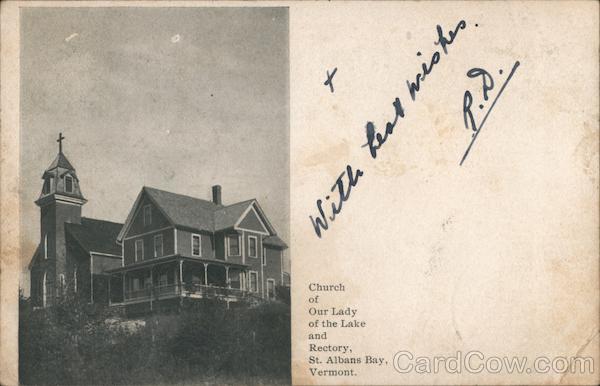 +
With best wishes.
P.D.
Church
of
Our Lady
of the Lake
and
Rectory,
St. Albans Bay,
Vermont.
CardCow.com